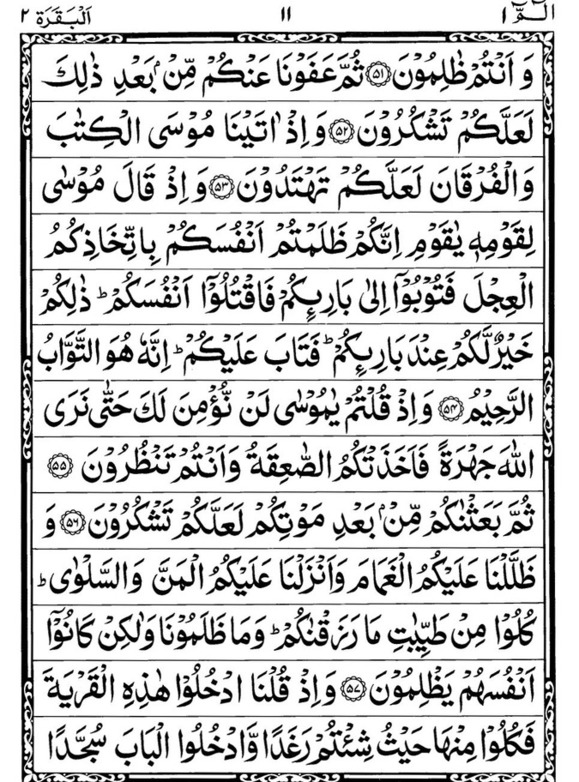 الٓمّٓ ١ ١١ اَلْبَقَرَة ٢
وَ اَنْتُمْ ظٰلِمُوْنَ ﴿۵۱﴾ ثُمَّ عَفَوْنَا عَنْكُمْ مِّنْۢ بَعْدِ ذٰلِكَ
لَعَلَّكُمْ تَشْكُرُوْنَ ﴿۵۲﴾ وَ اِذْ اٰتَيْنَا مُوْسَى الْكِتٰبَ
وَ الْفُرْقَانَ لَعَلَّكُمْ تَهْتَدُوْنَ ﴿۵۳﴾ وَ اِذْ قَالَ مُوْسٰى
لِقَوْمِهٖ يٰقَوْمِ اِنَّكُمْ ظَلَمْتُمْ اَنْفُسَكُمْ بِاتِّخَاذِكُمُ
الْعِجْلَ فَتُوْبُوْۤا اِلٰى بَارِىِٕكُمْ فَاقْتُلُوْۤا اَنْفُسَكُمْ ؕ ذٰلِكُمْ
خَيْرٌ لَّكُمْ عِنْدَ بَارِىِٕكُمْ ؕ فَتَابَ عَلَيْكُمْ ؕ اِنَّهٗ هُوَ التَّوَّابُ
الرَّحِيْمُ ﴿۵۴﴾ وَ اِذْ قُلْتُمْ يٰمُوْسٰى لَنْ نُّؤْمِنَ لَكَ حَتّٰى نَرَى
اللّٰهَ جَهْرَةً فَاَخَذَتْكُمُ الصّٰعِقَةُ وَ اَنْتُمْ تَنْظُرُوْنَ ﴿۵۵﴾
ثُمَّ بَعَثْنٰكُمْ مِّنْۢ بَعْدِ مَوْتِكُمْ لَعَلَّكُمْ تَشْكُرُوْنَ ﴿۵۶﴾ وَ
ظَلَّلْنَا عَلَيْكُمُ الْغَمَامَ وَ اَنْزَلْنَا عَلَيْكُمُ الْمَنَّ وَ السَّلْوٰى ؕ
كُلُوْا مِنْ طَيِّبٰتِ مَا رَزَقْنٰكُمْ ؕ وَ مَا ظَلَمُوْنَا وَ لٰكِنْ كَانُوْۤا
اَنْفُسَهُمْ يَظْلِمُوْنَ ﴿۵۷﴾ وَ اِذْ قُلْنَا ادْخُلُوْا هٰذِهِ الْقَرْيَةَ
فَكُلُوْا مِنْهَا حَيْثُ شِئْتُمْ رَغَدًا وَّ ادْخُلُوا الْبَابَ سُجَّدًا